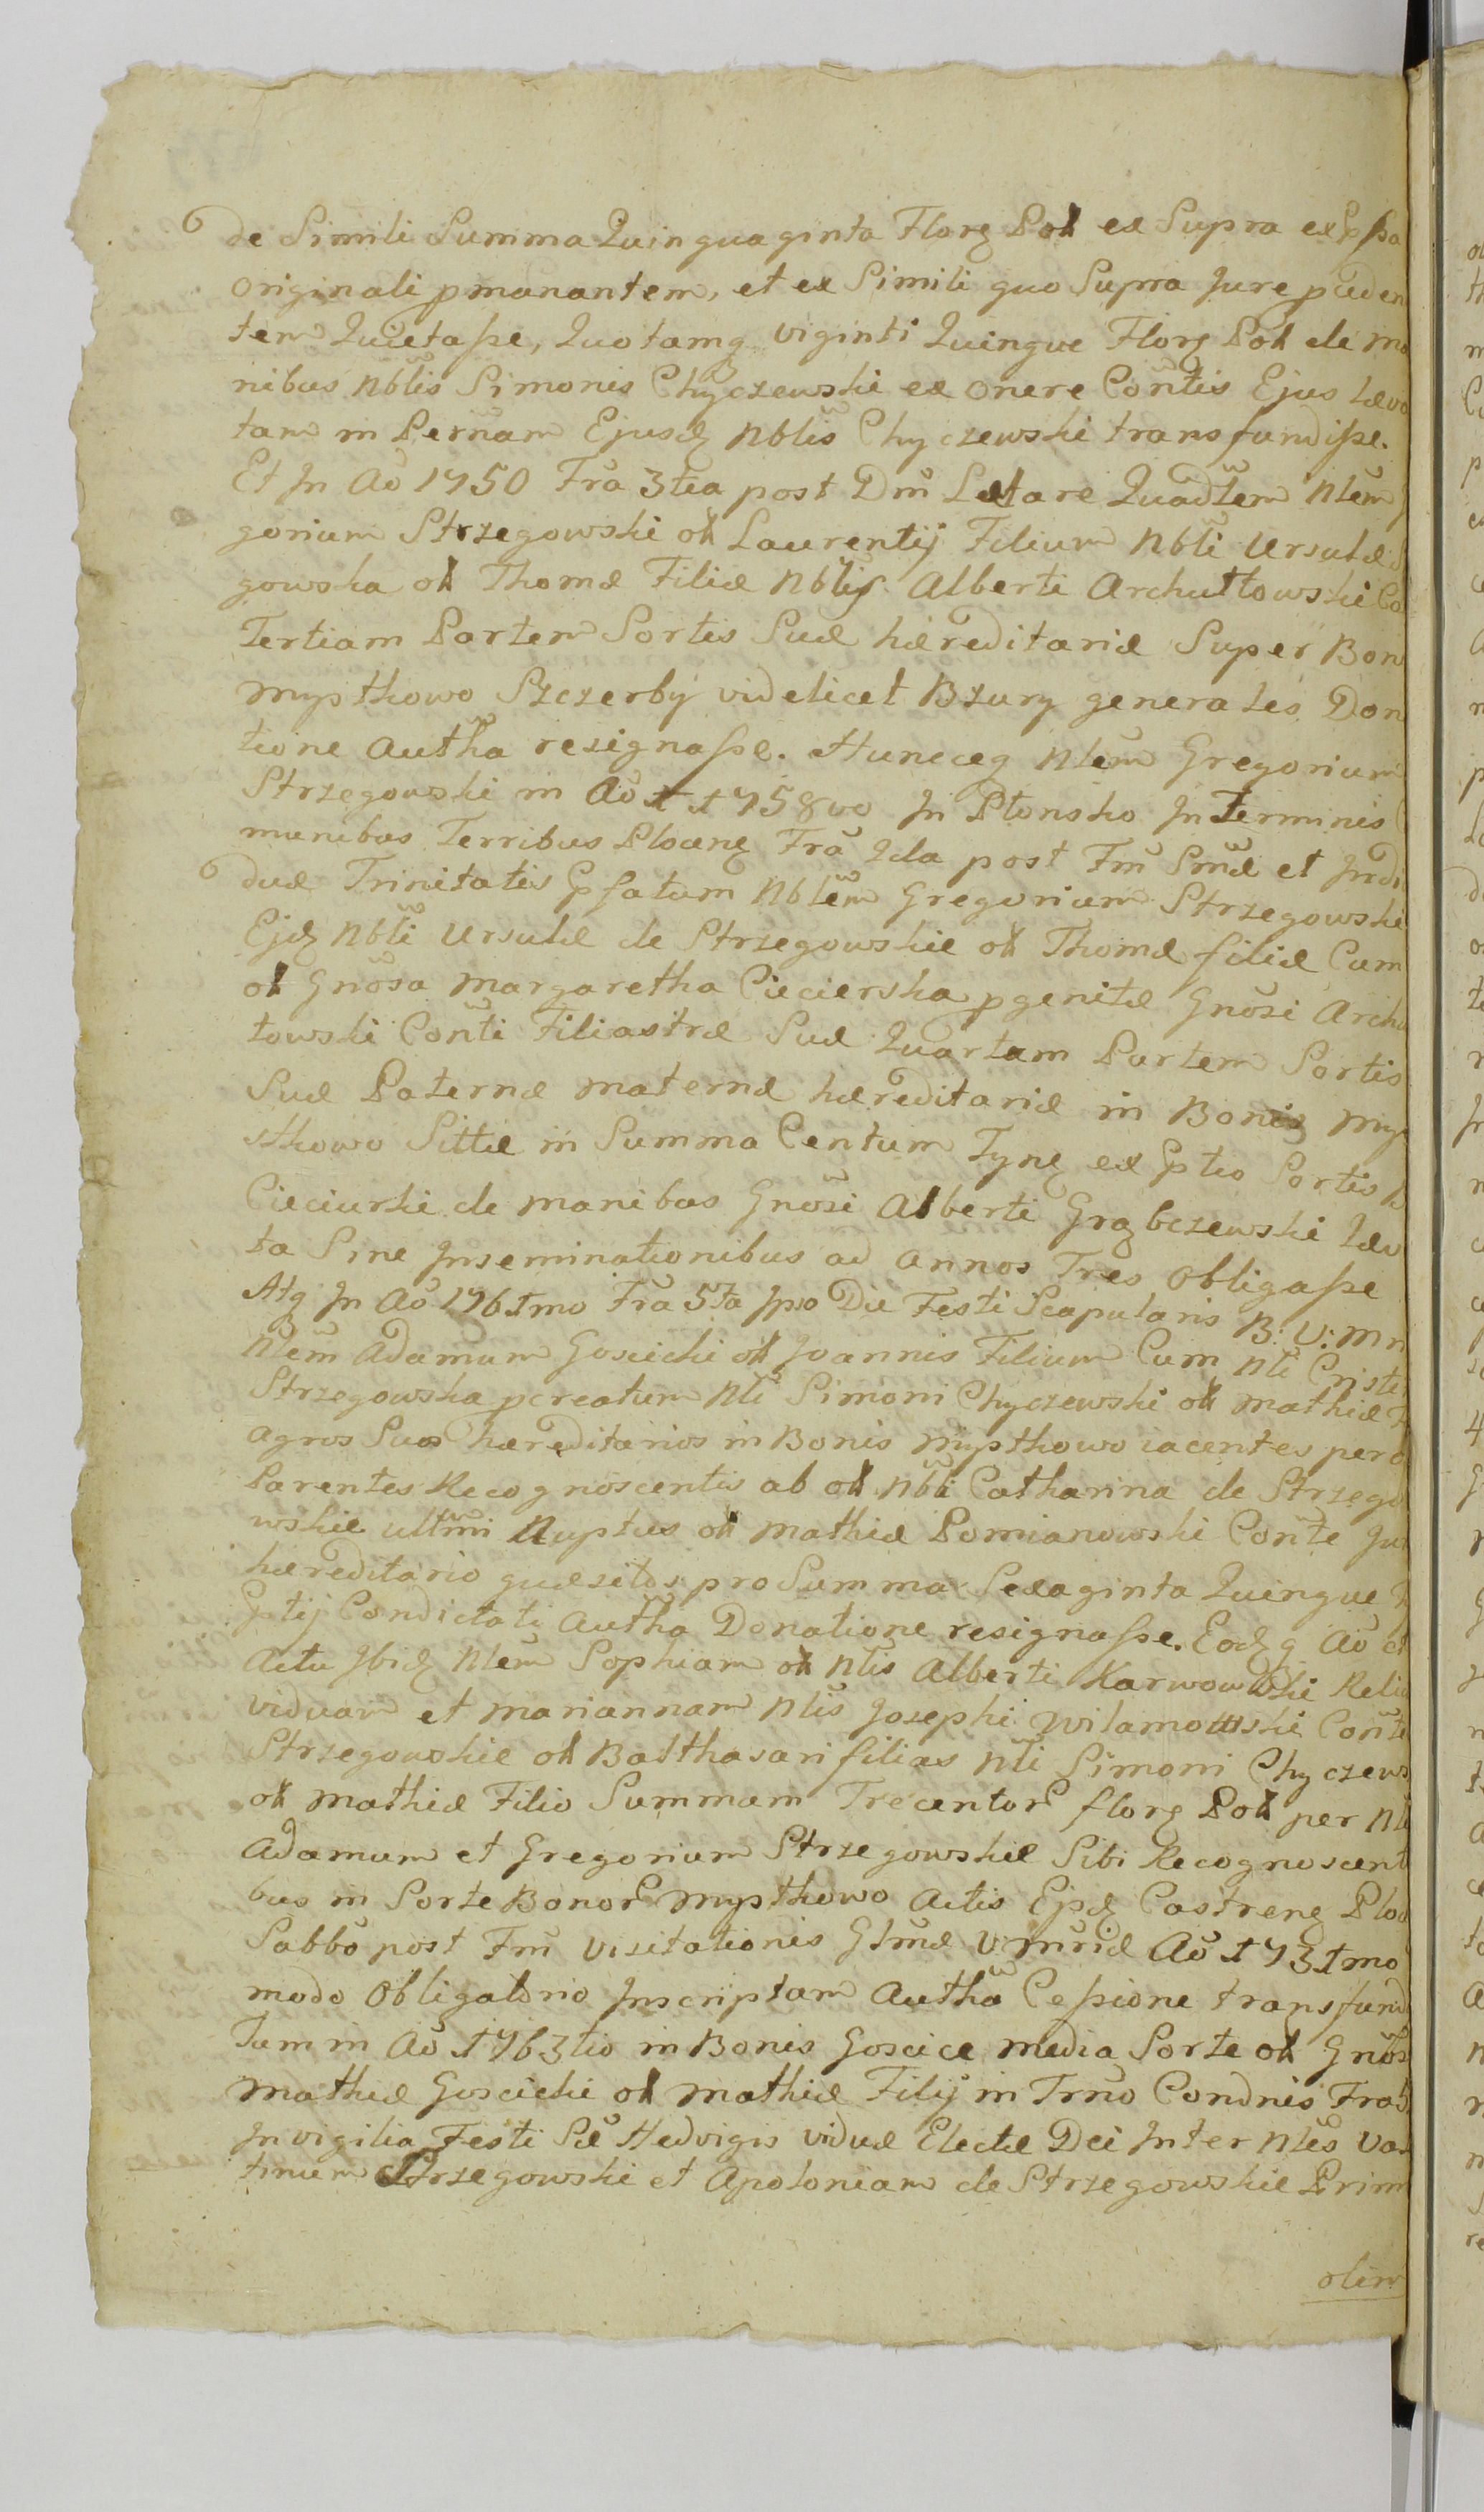 de Simili Summa Quinquaginta Florz Pol ex Supra
Originali pmanantem, et ex Simili quo Supra Jure
tem Quietasse, Quotamq viginti Quinque Florz Pol de ma
nibus Nblis Simonis Chyczewski ex onere Contis Ejus Leva
tam in Pernam Ejusd Nblis Chyczewski transfundisse.
Et In Ao 1750 Fra 3tia post Dm Laetare Quadlem Nlem
gorium Strzegowski ol Laurentij Filium Nbli Ursulæ S
gowska ol Thomæ Filiæ Nblis Alberti Archutowski Co
Tertiam Partem Sortis Suæ hæreditariæ Super Bon
Mysthowo Szczerby videlicet Bzury generales Don
tione Autha resignasse. Hunceq Nlem Gregorium
Strzegowski in Ao 1758vo In Plonsko In Terminis
munibus Terribus Plocenz Fra 2da post Fm Smæ et Indi
duæ Trinitatis Nblem Gregorium Strzegowski
Ejd Nbli Ursulæ de Strzegowskie ol Thomæ filiæ Cum
ol Gnosa Margaretha Ciecierska pgenitæ Gnosi Archu
towski Conti Filiastræ Suæ Quartam Partem Sortis
Suæ Paternæ maternæ hæreditariæ in Bonis Mys
thowo Sittæ in Summa Centum Tynf ex Sortis
Cieciurski de manibus Gnosi Alberti Grąbczewski Leva
ta Sine Inseminationibus ad Annos Tres Obligasse
Atq In Ao 1761mo Fra 5ta Ipso Die Festi Scapularis B: V: M
Nlem Adamum Goscicki ol Joannis Filium Cum Nli
Strzegowska pcreatum Nli Simoni Chyczewski ol Mathiæ F
Agros Suos hæreditarios in Bonis Mysthowo iacentes per
Parentes Recognoscentis ab ol Nbli Catharina de Strzego
wskie ultmi Nuptus ol Mathiæ Pomianowski Conte Jur
hæreditario quæsitos pro Summa Sexaginta Quinque
Condictati Autha Donatione resignasse. Eodq Ao et
Actu Ibid Nlem Sophiam ol Nlis Alberti Karwowski Relic
viduam et Mariannam Nlis Josephi Wilamowski Conte
Strzegowskie ol Balthasari filias Nli Simoni Chyczews
ol Mathiæ Filio Summam Trecentor florz Pol per Nle
Adamum et Gregorium Strzegowskie Sibi Recognoscent
bus in Sorte Bonor Mysthowo Actis Castrenz Ploc
Sabbo post Fm Visitationis Glmæ V: Ao 1731mo
modo Obligatorio Inscriptam Autha Cessione transfund
Tum in Ao 1763tio in Bonis Goscice media Sorte ol Gnos
Mathiæ Goscicki ol Mathiæ Filij in Trno Condnis Fra
In vigilia Festi Sæ Hedvigis viduæ Electæ Dei Inter Nles Va
tinum Strzegowski et Apoloniam de Strzegowskie Prim
olim